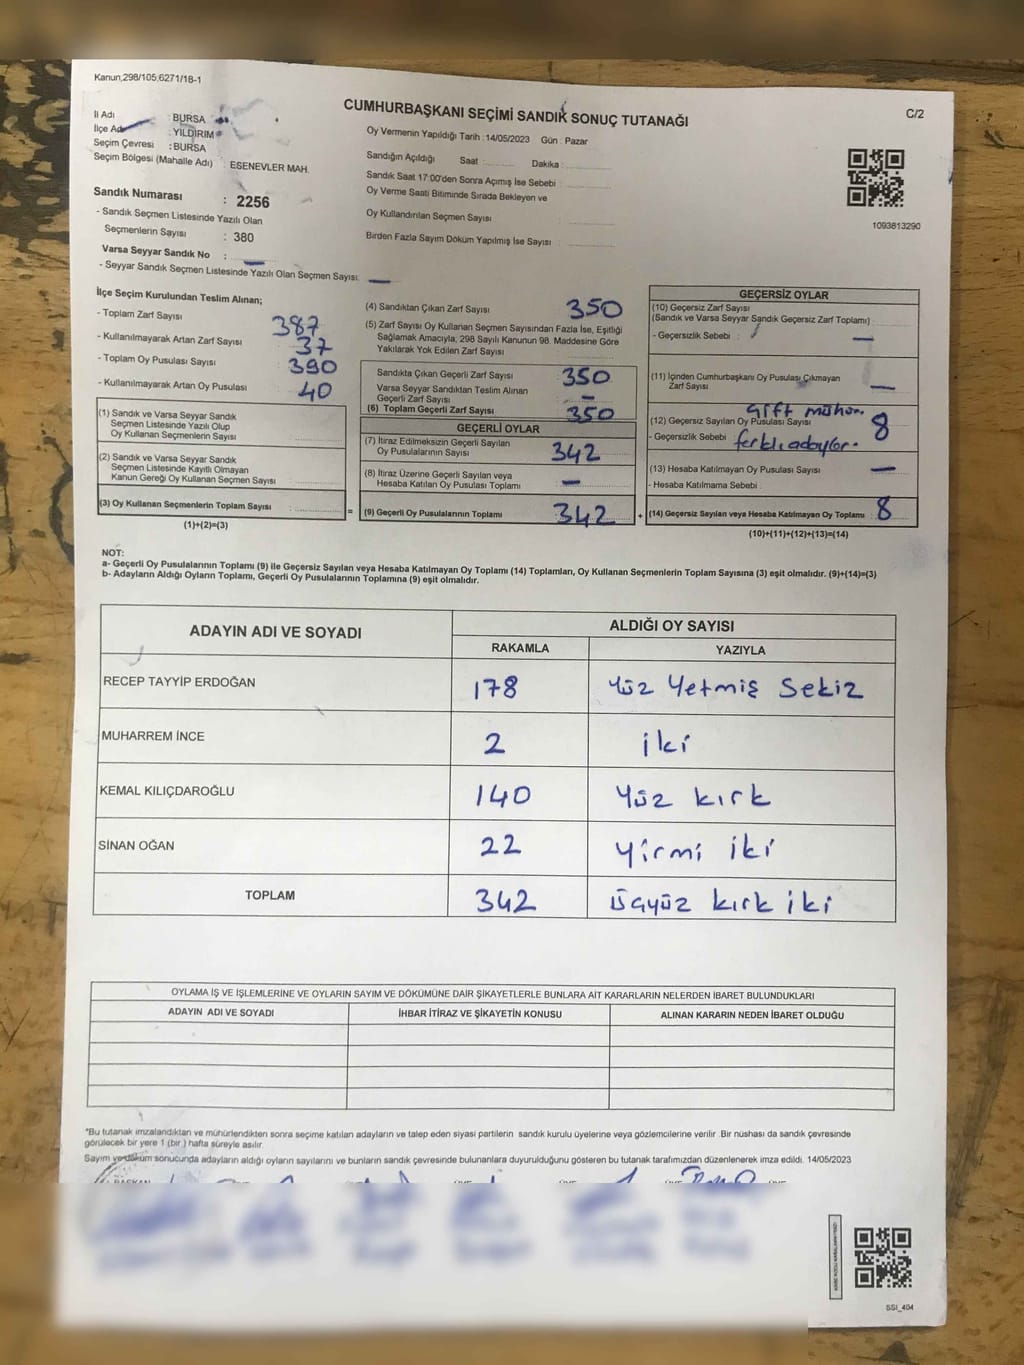 Kanun,298/105,6271/18-1
CUMHURBAŞKANI SEÇİMİ SANDIK SONUÇ TUTANAĞI
C/2
İl Adı : BURSA
İlçe Adı : YILDIRIM
Seçim Çevresi : BURSA
Seçim Bölgesi (Mahalle Adı) : ESENEVLER MAH.
Sandık Numarası : 2256
- Sandık Seçmen Listesinde Yazılı Olan
Seçmenlerin Sayısı : 380
Varsa Seyyar Sandık No :
- Seyyar Sandık Seçmen Listesinde Yazılı Olan Seçmen Sayısı: —
Oy Vermenin Yapıldığı Tarih : 14/05/2023 Gün : Pazar
Sandığın Açıldığı Saat : Dakika :
Sandık Saat 17:00'den Sonra Açımış İse Sebebi :
Oy Verme Saati Bitiminde Sırada Bekleyen ve
Oy Kullandırılan Seçmen Sayısı
Birden Fazla Sayım Döküm Yapılmış İse Sayısı :
1093813290
İlçe Seçim Kurulundan Teslim Alınan;
- Toplam Zarf Sayısı 387
- Kullanılmayarak Artan Zarf Sayısı 37
- Toplam Oy Pusulası Sayısı 390
- Kullanılmayarak Artan Oy Pusulası 40
(1) Sandık ve Varsa Seyyar Sandık
Seçmen Listesinde Yazılı Olup
Oy Kullanan Seçmenlerin Sayısı
(2) Sandık ve Varsa Seyyar Sandık
Seçmen Listesinde Kayıtlı Olmayan
Kanun Gereği Oy Kullanan Seçmen Sayısı
(3) Oy Kullanan Seçmenlerin Toplam Sayısı
(1)+(2)=(3)
(4) Sandıktan Çıkan Zarf Sayısı 350
(5) Zarf Sayısı Oy Kullanan Seçmen Sayısından Fazla İse, Eşitliği
Sağlamak Amacıyla; 298 Sayılı Kanunun 98. Maddesine Göre
Yakılarak Yok Edilen Zarf Sayısı
Sandıkta Çıkan Geçerli Zarf Sayısı 350
Varsa Seyyar Sandıktan Teslim Alınan
Geçerli Zarf Sayısı —
(6) Toplam Geçerli Zarf Sayısı 350
GEÇERLİ OYLAR
(7) İtiraz Edilmeksizin Geçerli Sayılan
Oy Pusulalarının Sayısı 342
(8) İtiraz Üzerine Geçerli Sayılan veya
Hesaba Katılan Oy Pusulası Toplamı —
= (9) Geçerli Oy Pusulalarının Toplamı 342 +
GEÇERSİZ OYLAR
(10) Geçersiz Zarf Sayısı
(Sandık ve Varsa Seyyar Sandık Geçersiz Zarf Toplamı)
- Geçersizlik Sebebi : —
(11) İçinden Cumhurbaşkanı Oy Pusulası Çıkmayan
Zarf Sayısı —
Çift mühür.
(12) Geçersiz Sayılan Oy Pusulası Sayısı 8
- Geçersizlik Sebebi farklı adaylar.
(13) Hesaba Katılmayan Oy Pusulası Sayısı —
- Hesaba Katılmama Sebebi :
(14) Geçersiz Sayılan veya Hesaba Katılmayan Oy Toplamı 8
(10)+(11)+(12)+(13)=(14)
NOT:
a- Geçerli Oy Pusulalarının Toplamı (9) ile Geçersiz Sayılan veya Hesaba Katılmayan Oy Toplamı (14) Toplamları, Oy Kullanan Seçmenlerin Toplam Sayısına (3) eşit olmalıdır. (9)+(14)=(3)
b- Adayların Aldığı Oyların Toplamı, Geçerli Oy Pusulalarının Toplamına (9) eşit olmalıdır.
ADAYIN ADI VE SOYADI ALDIĞI OY SAYISI
RAKAMLA YAZIYLA
RECEP TAYYİP ERDOĞAN 178 Yüz Yetmiş Sekiz
MUHARREM İNCE 2 iki
KEMAL KILIÇDAROĞLU 140 Yüz kırk
SİNAN OĞAN 22 Yirmi iki
TOPLAM 342 üçyüz kırk iki
OYLAMA İŞ VE İŞLEMLERİNE VE OYLARIN SAYIM VE DÖKÜMÜNE DAİR ŞİKAYETLERLE BUNLARA AİT KARARLARIN NELERDEN İBARET BULUNDUKLARI
ADAYIN ADI VE SOYADI İHBAR İTİRAZ VE ŞİKAYETİN KONUSU ALINAN KARARIN NEDEN İBARET OLDUĞU
*Bu tutanak imzalandıktan ve mühürlendikten sonra seçime katılan adayların ve talep eden siyasi partilerin sandık kurulu üyelerine veya gözlemcilerine verilir .Bir nüshası da sandık çevresinde
görülecek bir yere 1 (bir ) hafta süreyle asılır.
Sayım ve döküm sonucunda adayların aldığı oyların sayılarını ve bunların sandık çevresinde bulunanlara duyurulduğunu gösteren bu tutanak tarafımızdan düzenlenerek imza edildi. 14/05/2023
BAŞKAN
SSI_404